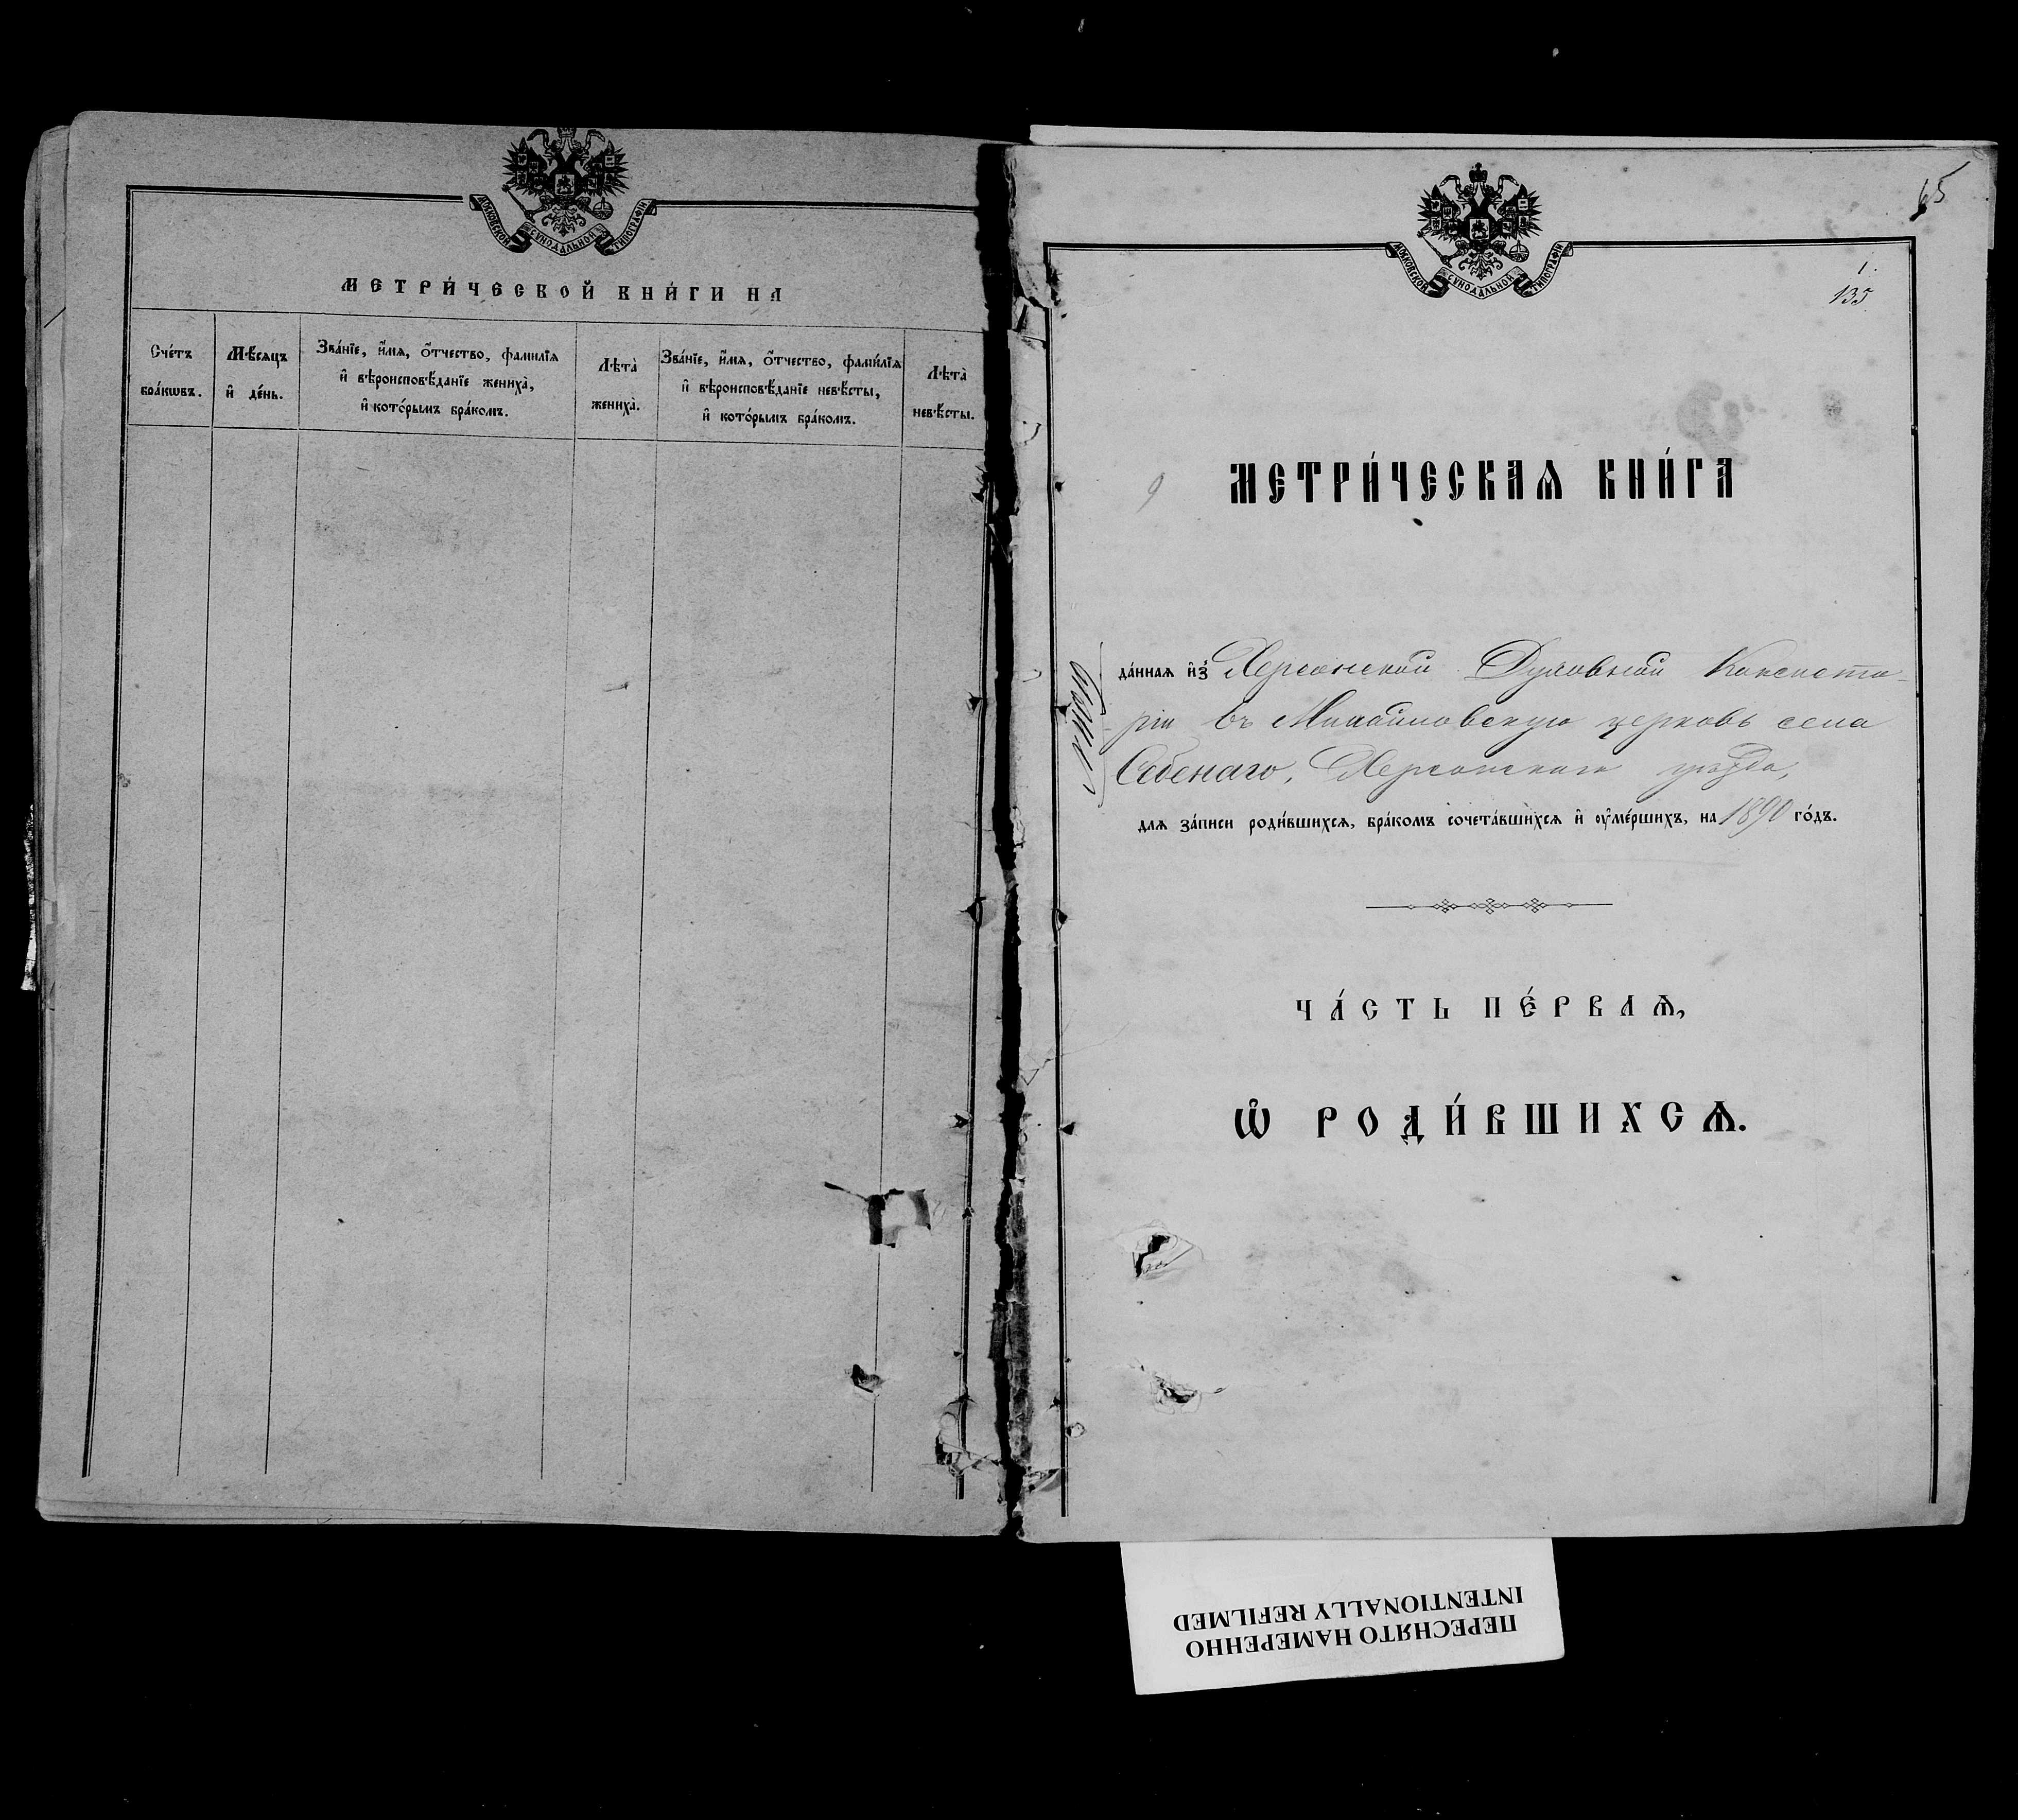 МОСКОВСКОЙ СѴНОДАЛЬНОЙ ТИПОГРАФІИ
МЕТРИ́ЧЕСКОЙ КНИ́ГИ НА
Сче́тъ бра́кѡвъ.
Мѣ́сяцъ и҆ де́нь.
Зва́нїе, и҆́мѧ, ѻ҆́тчество, фами́лїѧ
и҆ вѣроисповѣ́данїе жениха̀,
и҆ кото́рымъ бра́комъ.
Лѣта̀ жениха̀.
Зва́нїе, и҆́мѧ, ѻ҆́тчество, фами́лїѧ
и҆ вѣроисповѣ́данїе невѣ́сты,
и҆ кото́рымъ бра́комъ.
Лѣта̀ невѣ́сты.
65
МОСКОВСКОЙ СѴНОДАЛЬНОЙ ТИПОГРАФІИ
1.
135
МЕТРИ́ЧЕСКАѦ КНИ́ГА
9
да́ннаѧ и҆з̾ Херсонской Духовной Консисто-
ріи въ Михайловскую церковь села
Себенаго, Херсонскаго уѣзда,
длѧ за́писи роди́вшихсѧ, бра́комъ сочета́вшихсѧ и҆ ᲂу҆ме́ршихъ, на 1890 го́дъ.
ЧА́СТЬ ПЕ́РВАѦ,
Ѽ РОДИ́ВШИХСѦ.
ПЕРЕСНЯТО НАМЕРЕННО
INTENTIONALLY REFILMED